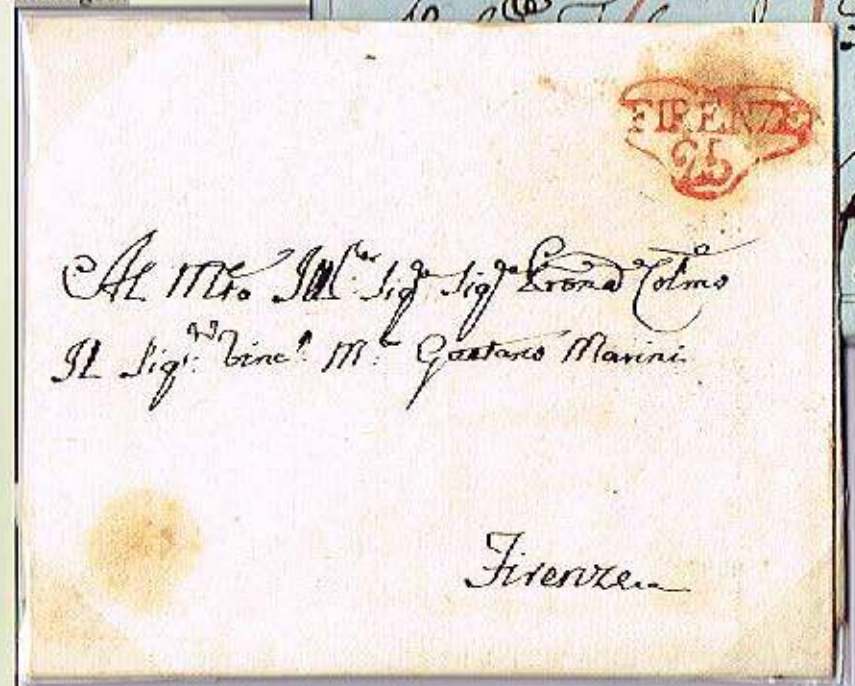 FIRENZE
25
Al Mto Ill. Sigr Sigr Prone Colmo
Il Sigr: Vinc. Ma Gaetano Marini
Firenze